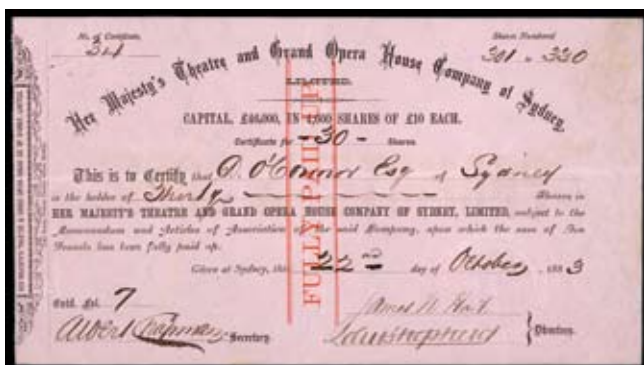 No. of Certificate,
34
Shares Numbered
301 - 330
Her Majesty's Theatre and Grand Opera House Company of Sydney,
LIMITED.
CAPITAL, £40,000, IN 4,000 SHARES OF £10 EACH.
Certificate for - 30 - Shares.
This is to Certify that D. O'Connor Esq of Sydney
is the holder of Thirty Shares in
HER MAJESTY'S THEATRE AND GRAND OPERA HOUSE COMPANY OF SYDNEY, LIMITED, subject to the
Memorandum and Articles of Association of the said Company, upon which the sum of Ten
Pounds has been fully paid up.
Given at Sydney, this 22nd day of October, 1883
FULLY PAID UP
Fol. 7
Albert Chapman Secretary.
James
Directors.